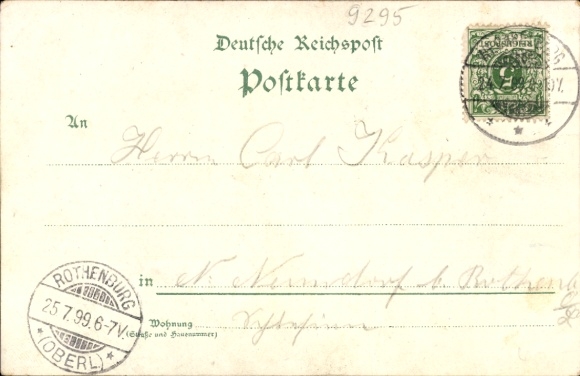 9295
Deutsche Reichspost
Postkarte
An
Herrn Carl Kasper
in N. Neundorf b. Rothenb
O/L
Wohnung
(Straße und Hausnummer)
Schlesien
ROTHENBURG
25.7.99.6-7V.
* (OBERL) *
REICHSPOST
5